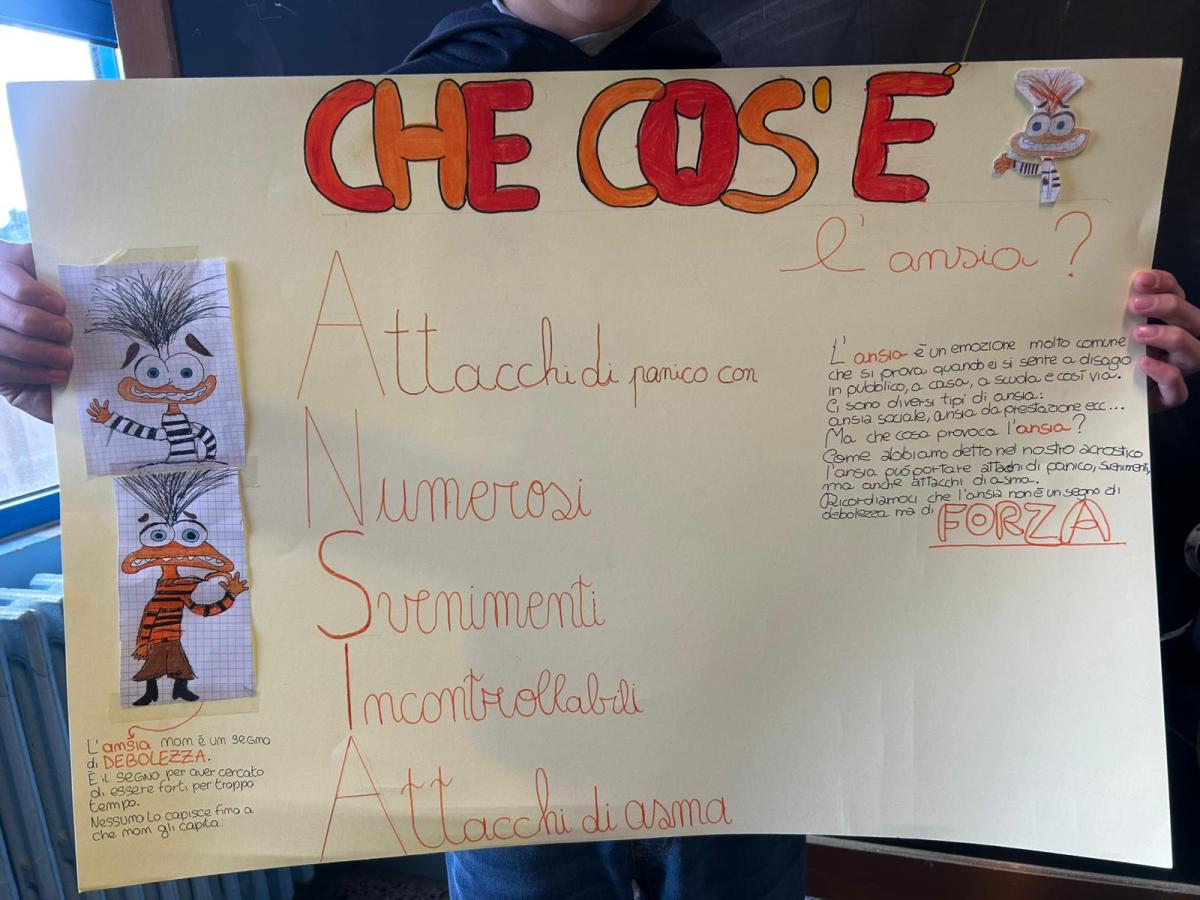 CHE COS'È
l'ansia?
Attacchi di panico con
Numerosi
Svenimenti
Incontrollabili
Attacchi di asma
L'ansia è un emozione molto comune
che si prova quando ci si sente a disagio
in pubblico, a casa, a scuola e così via.
Ci sono diversi tipi di ansia:
ansia sociale, ansia da prestazione ecc...
Ma che cosa provoca l'ansia?
Come abbiamo detto nel nostro acrostico
l'ansia può portare attachi di panico, svenimenti,
ma anche attacchi di asma.
Ricordiamoci che l'ansia non è un segno di
debolezza ma di FORZA
L'ansia mom è um segmo
di DEBOLEZZA.
È il segno per aver cercato
di essere forti per troppo
tempo.
Nessumo lo capisce fimo a
che mom gli capita.